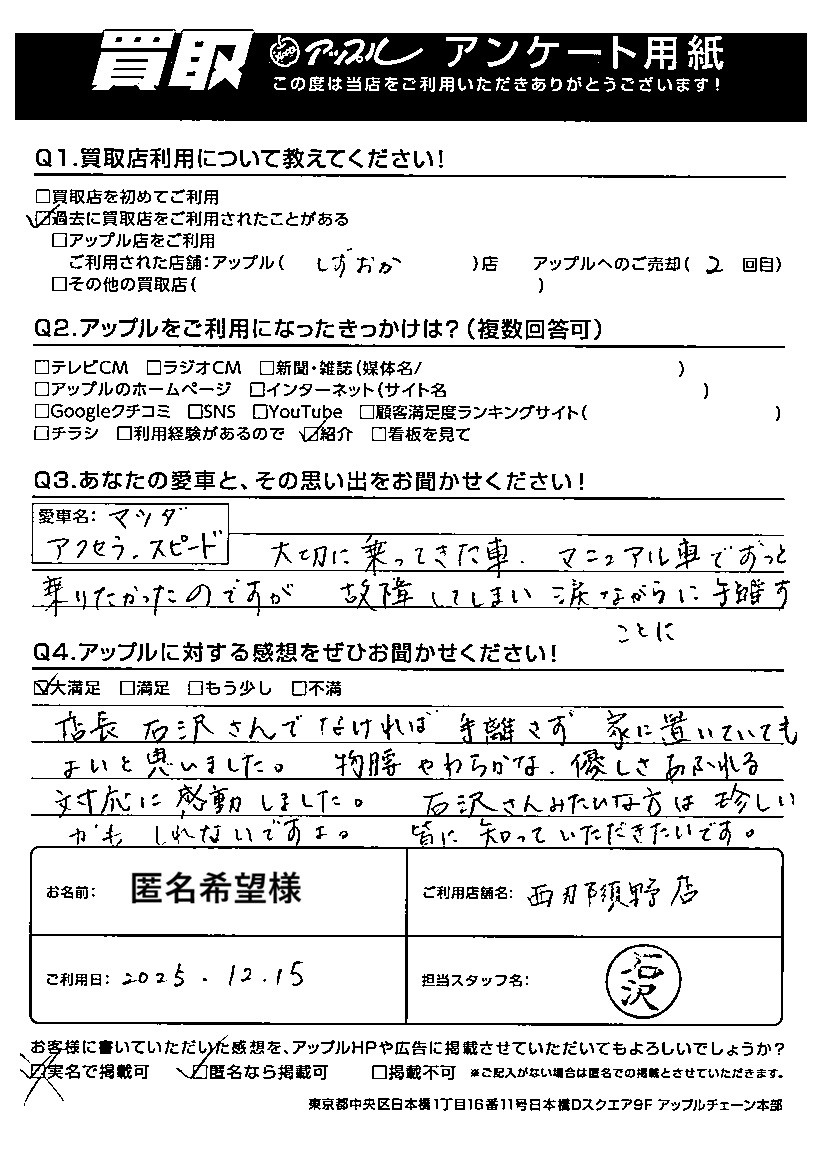 買取 アップル アンケート用紙
この度は当店をご利用いただきありがとうございます!
Q1.買取店利用について教えてください!
□買取店を初めてご利用
☑過去に買取店をご利用されたことがある
□アップル店をご利用
ご利用された店舗:アップル( しずおか )店 アップルへのご売却( 2 回目)
□その他の買取店( )
Q2.アップルをご利用になったきっかけは?(複数回答可)
□テレビCM □ラジオCM □新聞・雑誌(媒体名/ )
□アップルのホームページ □インターネット(サイト名 )
□Googleクチコミ □SNS □YouTube □顧客満足度ランキングサイト( )
□チラシ □利用経験があるので ☑紹介 □看板を見て
Q3.あなたの愛車と、その思い出をお聞かせください!
愛車名: マツダ
アクセラ.スピード 大切に乗ってきた車. マニュアル車でずっと
乗りたかったのですが 故障してしまい 涙ながらに手離す
ことに
Q4.アップルに対する感想をぜひお聞かせください!
☑大満足 □満足 □もう少し □不満
店長 石沢さんでなければ 手離さず 家に置いていても
よいと思いました。 物腰やわらかな.優しさあふれる
対応に感動しました。 石沢さんみたいな方は珍しい
かもしれないですよ。 皆に知っていただきたいです。
お名前: 匿名希望様 ご利用店舗名: 西那須野店
ご利用日: 2025.12.15 担当スタッフ名: 石沢
お客様に書いていただいた感想を、アップルHPや広告に掲載させていただいてもよろしいでしょうか?
□実名で掲載可 ☑匿名なら掲載可 □掲載不可 ※ご記入がない場合は匿名での掲載とさせていただきます。
東京都中央区日本橋1丁目16番11号日本橋Dスクエア9F アップルチェーン本部